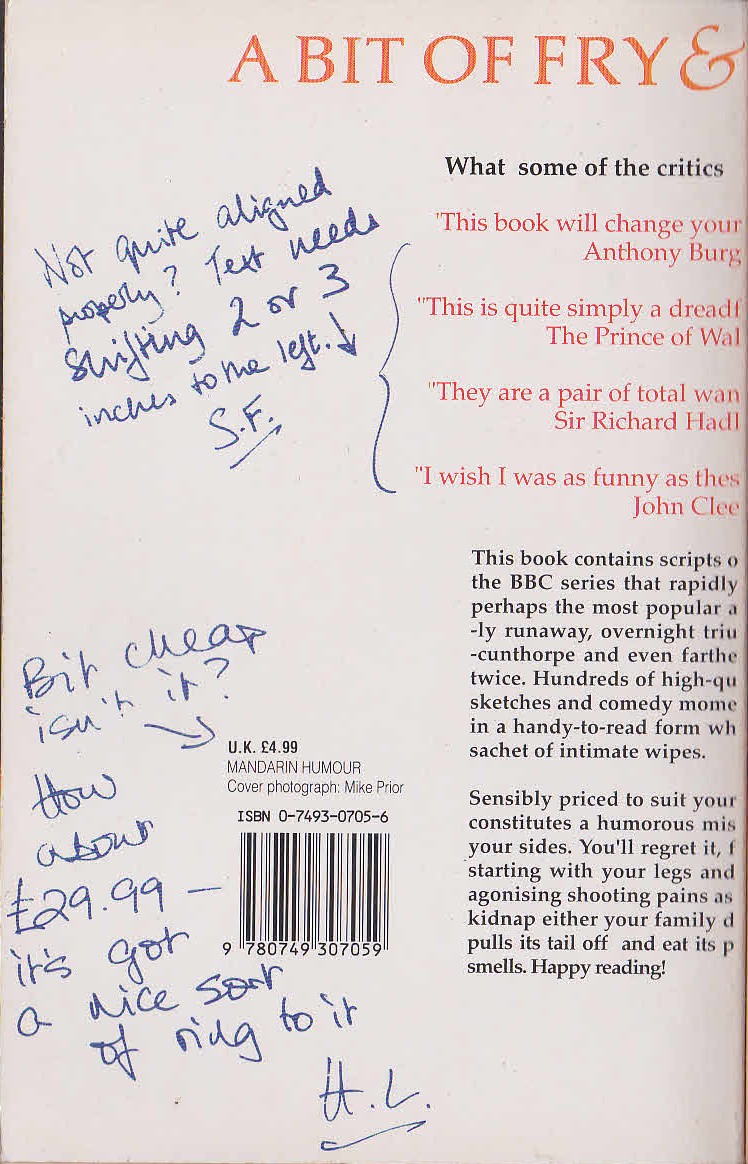 A BIT OF FRY &
What some of the critics
'This book will change your
Anthony Burg
"This is quite simply a dreadf
The Prince of Wal
"They are a pair of total wan
Sir Richard Hadl
"I wish I was as funny as thes
John Clee
Not quite aligned
properly? Text needs
shifting 2 or 3
inches to the left.
S.F.
This book contains scripts o
the BBC series that rapidly
perhaps the most popular a
-ly runaway, overnight triu
-cunthorpe and even farthe
twice. Hundreds of high-qu
sketches and comedy mome
in a handy-to-read form wh
sachet of intimate wipes.
Sensibly priced to suit your
constitutes a humorous mis
your sides. You'll regret it, f
starting with your legs and
agonising shooting pains as
kidnap either your family d
pulls its tail off and eat its p
smells. Happy reading!
Bit cheap
isn't it?
How
about
£29.99 –
it's got
a nice sort
of ring to it
H.L.
U.K. £4.99
MANDARIN HUMOUR
Cover photograph: Mike Prior
ISBN 0-7493-0705-6
9 780749 307059